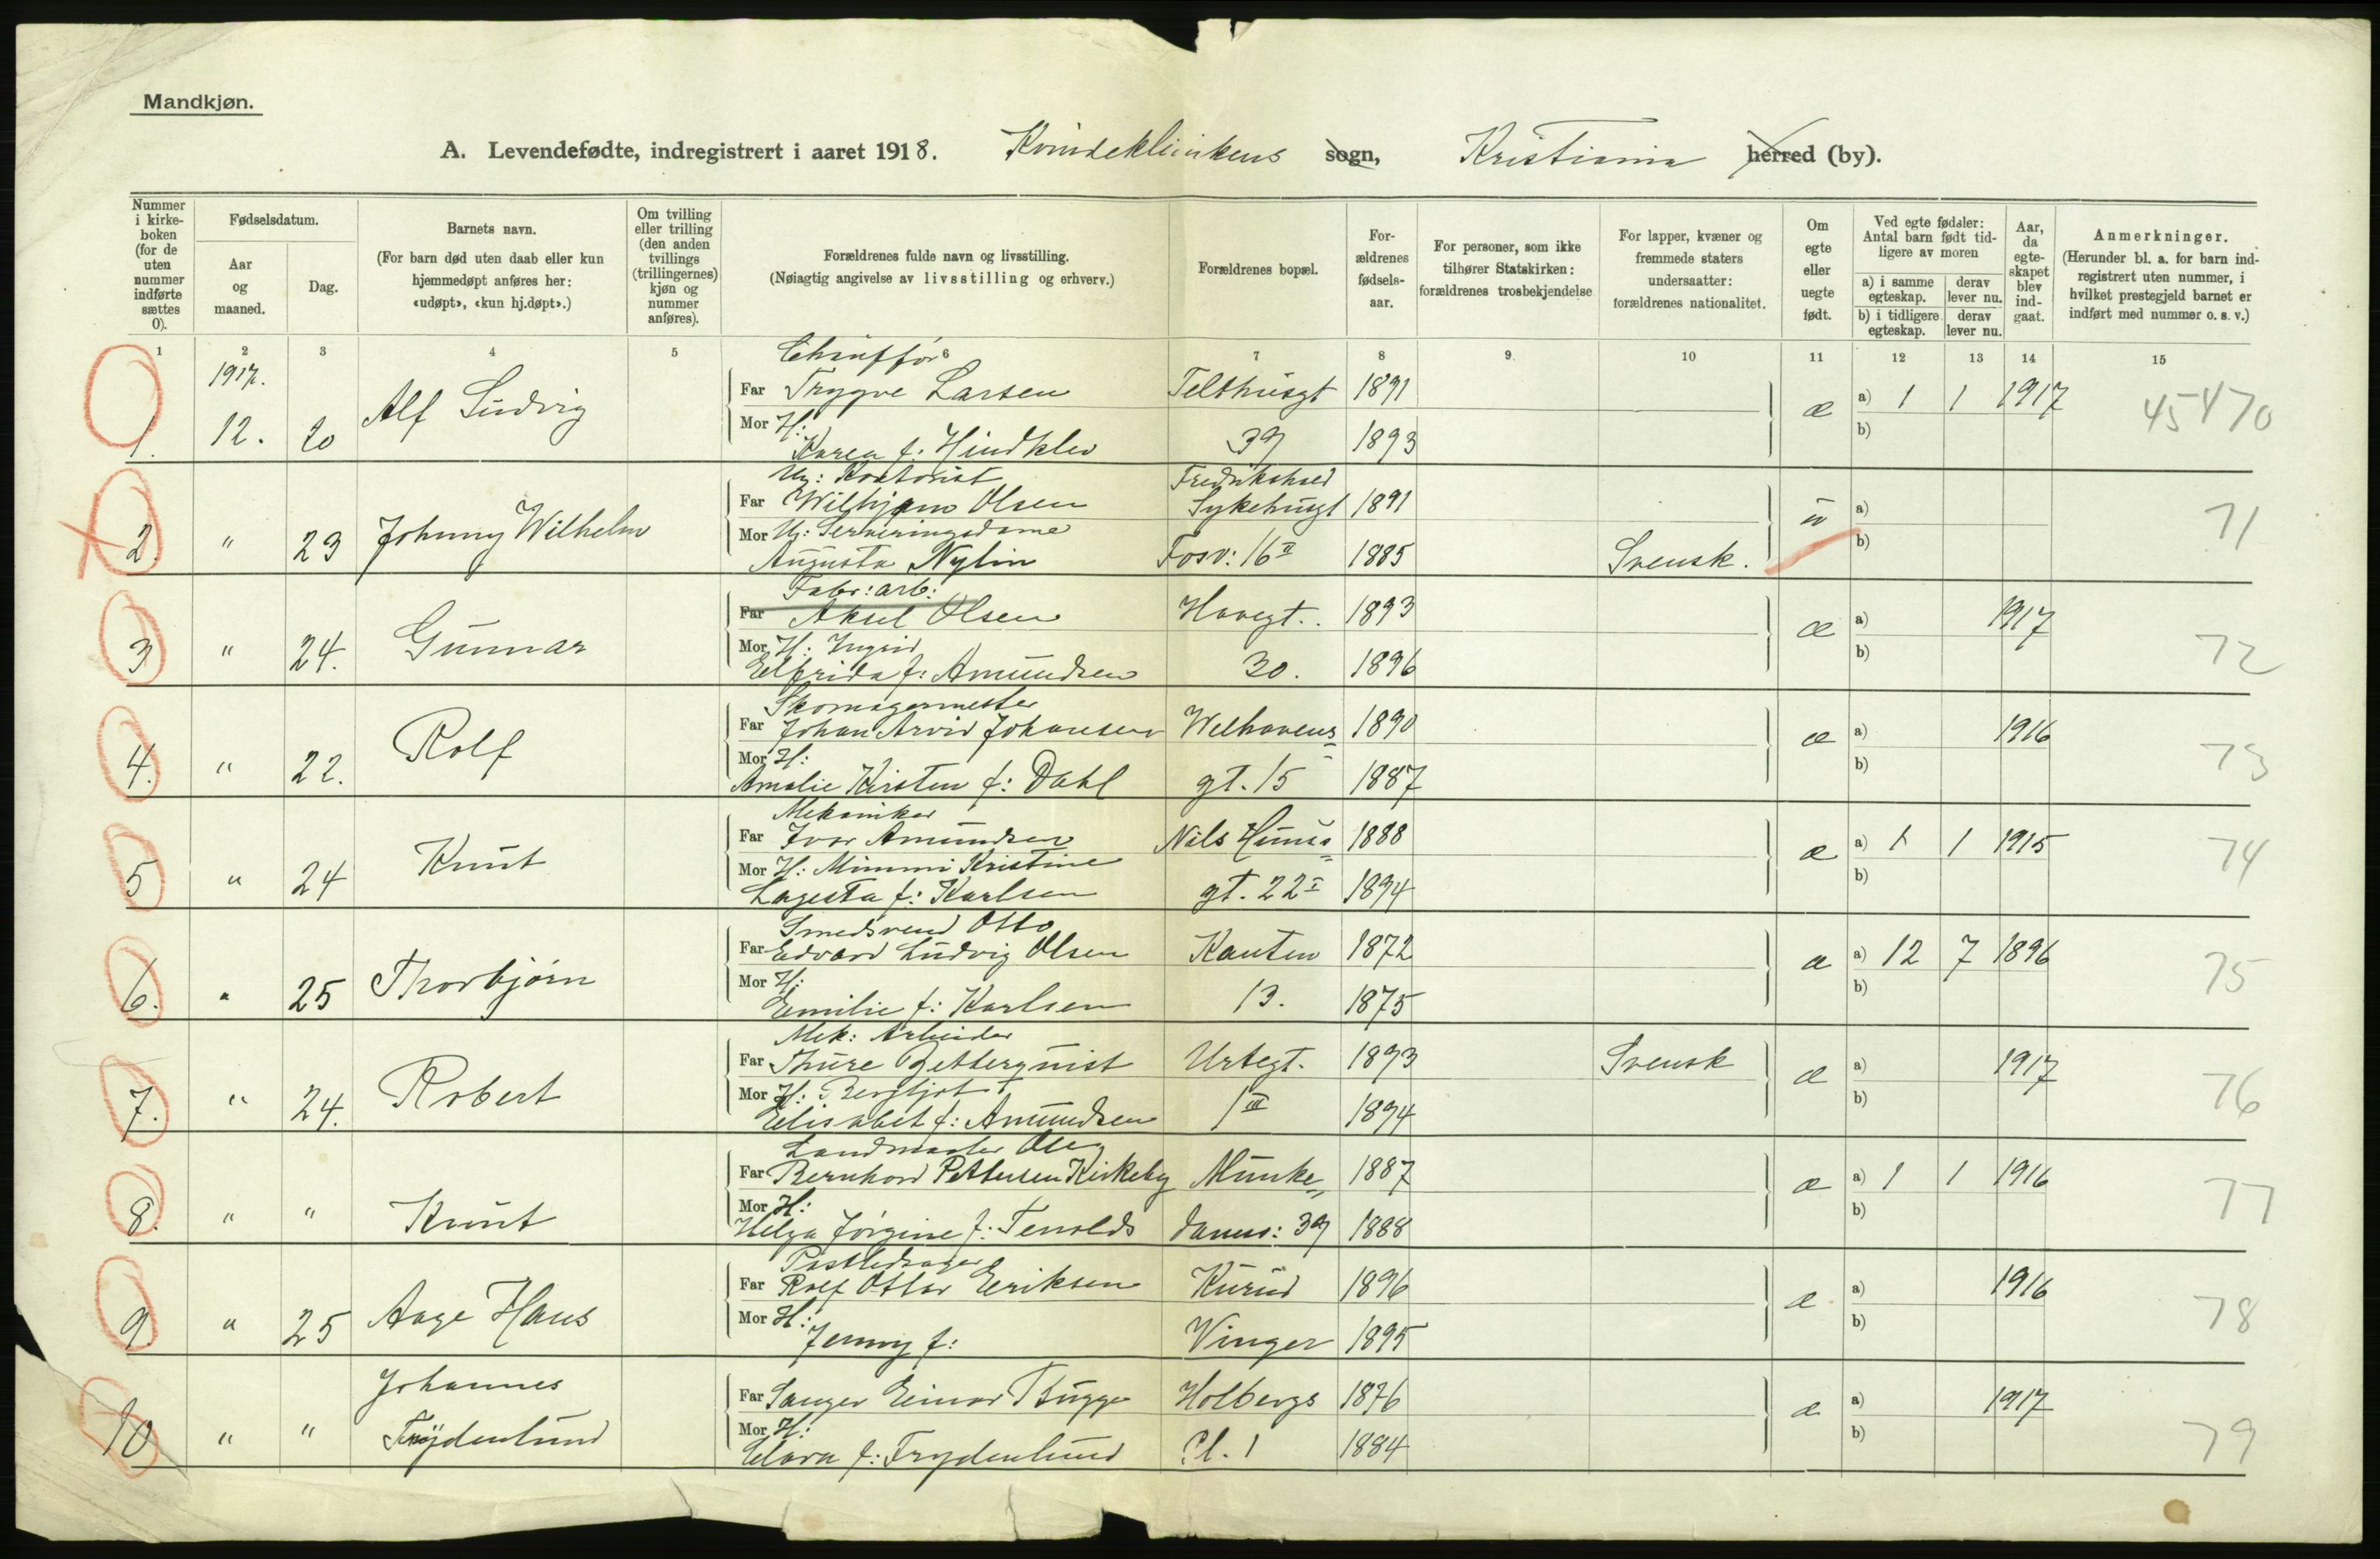 Mandkjøn.
A. Levendefødte, indregistrert i aaret 1918. Kvindeklinikens sogn, Kristiania herred (by).
Nummer i kirkeboken (for de uten nummer indførte sættes 0).
Fødselsdatum.
Aar og maaned.
Dag.
Barnets navn.
(For barn død uten daab eller kun hjemmedøpt anføres her: «udøpt», «kun hj.døpt».)
Om tvilling eller trilling (den anden tvillings (trillingernes) kjøn og nummer anføres).
Forældrenes fulde navn og livsstilling.
(Nøiagtig angivelse av livsstilling og erhverv.)
Forældrenes bopæl.
Forældrenes fødselsaar.
For personer, som ikke tilhører Statskirken: forældrenes trosbekjendelse
For lapper, kvæner og fremmede staters undersaatter: forældrenes nationalitet.
Om egte eller uegte født.
Ved egte fødsler: Antal barn født tidligere av moren
a) i samme egteskap. derav lever nu.
b) i tidligere egteskap. derav lever nu.
Aar, da egteskapet blev indgaat.
Anmerkninger.
(Herunder bl. a. for barn indregistrert uten nummer, i hvilket prestegjeld barnet er indført med nummer o. s. v.)
1 2 3 4 5 6 7 8 9. 10 11 12 13 14 15
1917.
Chauffør
Far Trygve Larsen Telthusgt 1891 a) 1 1 1917
1. 12. 20 Alf Ludvig æ 45470
Mor H: b)
Karen f: Hindklev 39 1893
Ug: Kontorist Fredrikshald
Far Wilhjem Olsen Sykehusgt 1891 a)
2. " 23 Johnny Wilhelm u 71
Mor Ug: Serveringsdame b)
Augusta Nylin Fosv: 16 II 1885 Svensk.
Fabr: arb:
Far Aksel Olsen Havegt. 1893 a) 1917
3 " 24. Gunnar æ 72
Mor H: Ingrid b)
Elfrida f: Amundsen 30. 1896
Skomagermester
Far Johan Arvid Johansen Welhavens 1890 a) 1916
4. " 22. Rolf æ 73
Mor H: b)
Amalie Kirsten f: Dahl gt. 15 1887
Mekaniker
Far Ivar Amundsen Nils Huus 1888 a) 1 1 1915
5 " 24 Knut æ 74
Mor H: Mimmi Kristine b)
Lagesta f: Karlsen gt. 22 I 1894
Smedsvend Otto
Far Edvard Ludvig Olsen Kanten 1872 a) 12 7 1896
6. " 25 Thorbjørn æ 75
Mor H: b)
Emilie f: Karlsen 13. 1875
Mek: Arbeider
Far Thure Zetterquist Urtegt. 1893 Svensk a) 1917
7. " 24. Robert æ 76
Mor H: Bergljot b)
Elisabet f: Amundsen 1 III 1894
Landmaaler Ole
Far Bernhard Pettersen Kirkeby Munke 1887 a) 1 1 1916
8. " " Knut æ 77
Mor H: b)
Helga Jørgine f: Tenolds damsv: 39 1888
Postbedrager
Far Rolf Ottar Eriksen Kurud 1896 a) 1916
9 " 25 Aage Hans æ 78
Mor H: b)
Jenny f: Vinger 1895
Johannes
Far Sanger Einar Bugge Holbergs 1876 a) 1917
10 " " Frydenlund æ 79
Mor H: b)
Clara f: Frydenlund Pl. 1 1884